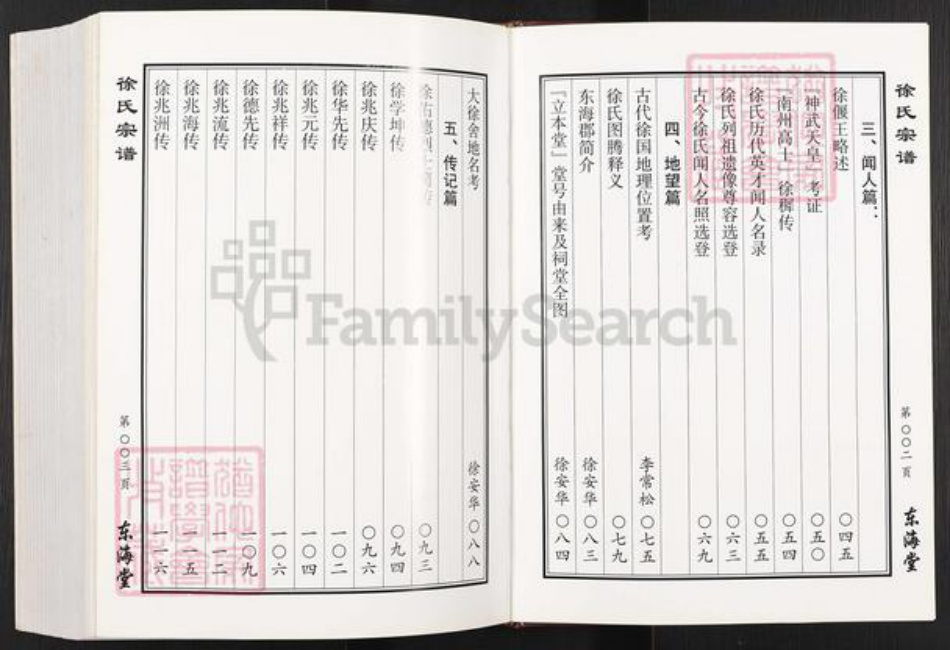 徐氏宗谱
第〇〇二页
东海堂
三、闻人篇：
徐偃王略述 〇四五
「神武天皇」考证 〇五〇
「南州高士」徐穉传 〇五四
徐氏历代英才闻人名录 〇五五
徐氏列祖遗像尊容选登 〇六三
古今徐氏闻人名照选登 〇六九
四、地望篇
古代徐国地理位置考 李常松 〇七五
徐氏图腾释义 〇七九
东海郡简介 徐安华 〇八三
『立本堂』堂号由来及祠堂全图 徐安华 〇八四
大徐舍地名考 徐安华 〇八八
五、传记篇
徐佑德 〇九三
徐学坤传 〇九四
徐兆庆传 〇九六
徐华先传 一〇二
徐兆元传 一〇四
徐兆祥传 一〇六
徐德先传 一〇九
徐兆流传 一一二
徐兆海传 一一五
徐兆洲传 一一六
徐氏宗谱
第〇〇三页
东海堂
FamilySearch